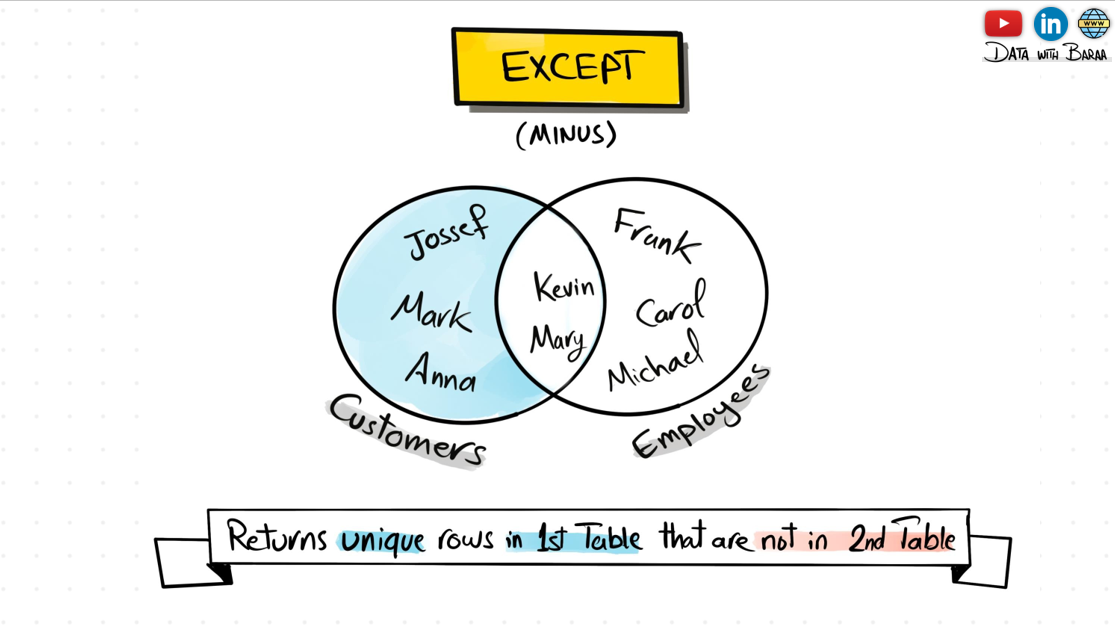 WWW
in
DATA WITH BARAA
EXCEPT
(MINUS)
Jossef
Mark
Anna
Kevin
Mary
Frank
Carol
Michael
Customers
Employees
Returns unique rows in 1st Table that are not in 2nd Table